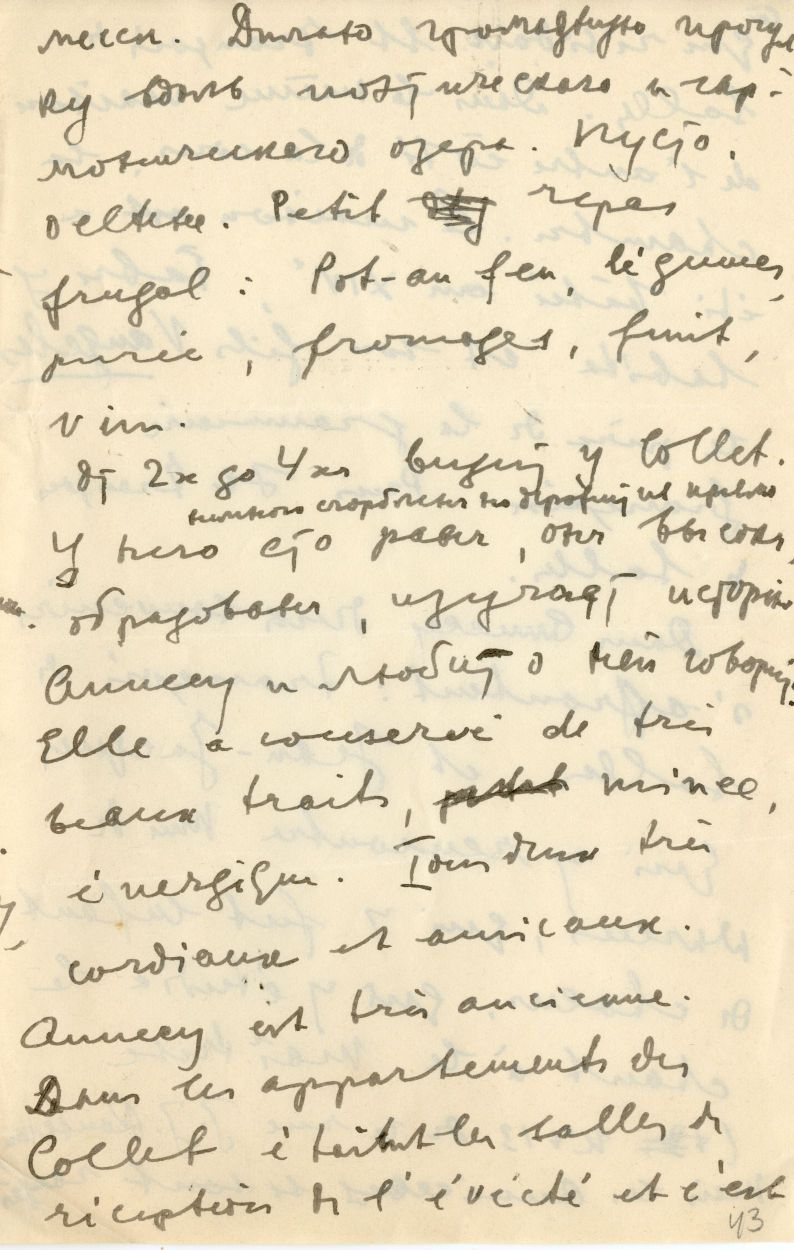 мессы. Делаю громадную прогул
ку вдоль поэтического и гар-
монического озера. Пусто.
Petit repas
frugal : Pot-au feu, légumes,
purée, fromages, fruit,
vin.
От 2х до 4х визит у Collet.
немного сгорбленный но держится прямо
У него сто ранен, очень высокий,
образован, изучает историю
Annecy и любит о ней говорить.
Elle a conservé de très
beaux traits, mince,
énergique. Tous deux très
cordiaux et amicaux.
Annecy est très ancienne.
Dans les appartements des
Collet étaient les salles de
réception de l'évêché et c'est
43